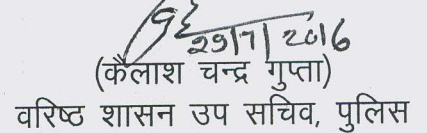 29/7/2016
(कैलाश चन्द्र गुप्ता)
वरिष्ठ शासन उप सचिव, पुलिस